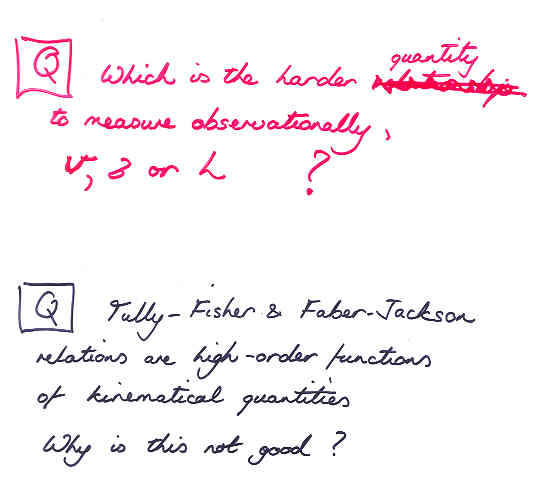 Q Which is the harder quantity
to measure observationally,
v, z or L ?
Q Tully-Fisher & Faber-Jackson
relations are high-order functions
of kinematical quantities
Why is this not good ?